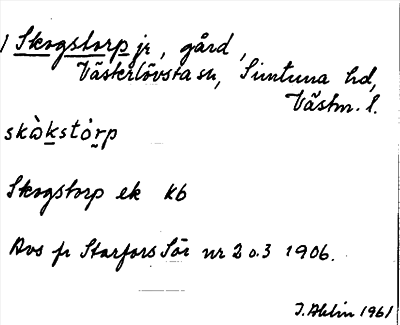 1 Skogstorp jr, gård,
Västerlövsta sn, Simtuna hd,
Västm. l.
skὼkstȯ́rp
Skogstorp ek Kb
Avs fr Starfors Sör nr 2 o. 3 1906.
J. Ahlin 1961